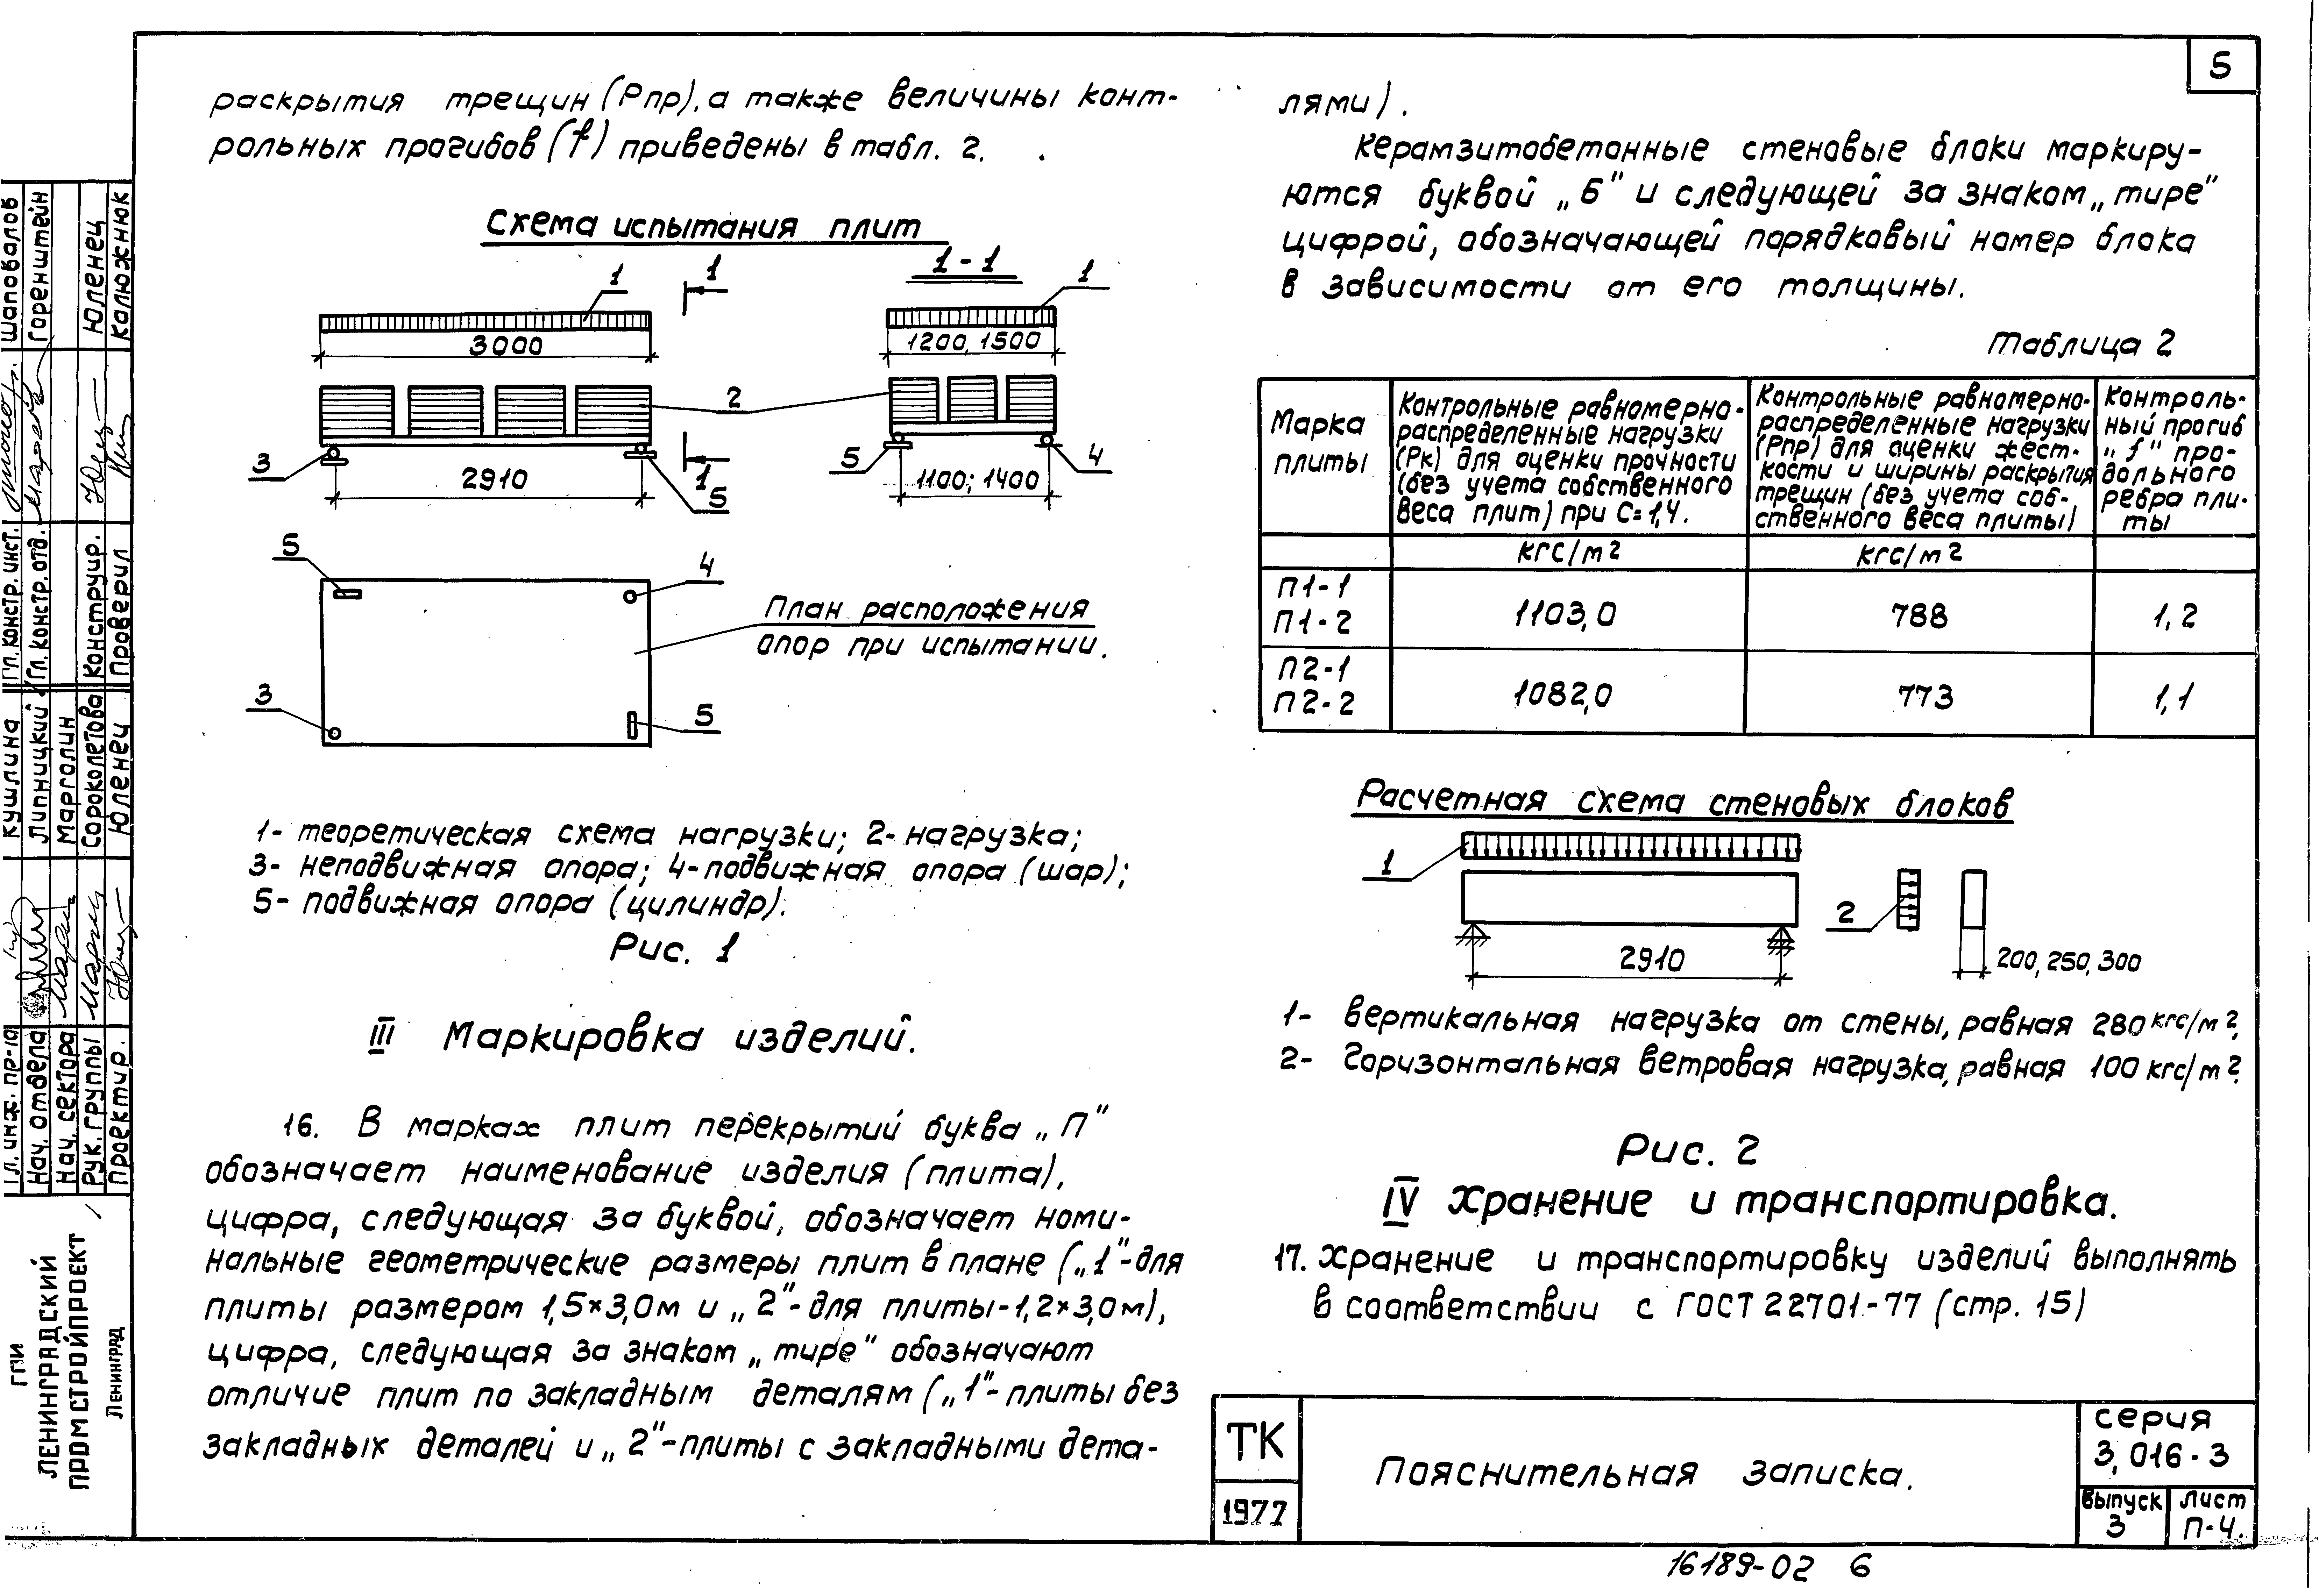 5
раскрытия трещин (Рпр), а также величины конт-
рольных прогибов (f) приведены в табл. 2.
Схема испытания плит
1-1
1
1
1
3000
1200, 1500
2
3
5
4
1
2910
5
1100; 1400
5
4
План расположения
опор при испытании.
3
5
1- теоретическая схема нагрузки; 2- нагрузка;
3- неподвижная опора; 4-подвижная опора (шар);
5- подвижная опора (цилиндр).
Рис. 1
III Маркировка изделий.
16. В марках плит перекрытий буква „П"
обозначает наименование изделия (плита),
цифра, следующая за буквой, обозначает номи-
нальные геометрические размеры плит в плане („1"-для
плиты размером 1,5×3,0м и „2"-для плиты-1,2×3,0м),
цифра, следующая за знаком „тире" обозначают
отличие плит по закладным деталям („1"-плиты без
закладных деталей и „2"-плиты с закладными дета-
лями).
Керамзитобетонные стеновые блоки маркиру-
ются буквой „Б" и следующей за знаком „тире"
цифрой, обозначающей порядковый номер блока
в зависимости от его толщины.
Таблица 2
Марка
плиты
Контрольные равномерно-
распределенные нагрузки
(Рк) для оценки прочности
(без учета собственного
веса плит) при С=1,4.
Контрольные равномерно-
распределенные нагрузки
(Рпр) для оценки жест-
кости и ширины раскрытия
трещин (без учета соб-
ственного веса плиты)
Контроль-
ный прогиб
„f" про-
дольного
ребра пли-
ты
кгс/м2
кгс/м2
П1-1
П1-2
1103,0
788
1,2
П2-1
П2-2
1082,0
773
1,1
Расчетная схема стеновых блоков
1
2
2910
200, 250, 300
1- Вертикальная нагрузка от стены, равная 280 кгс/м2.
2- Горизонтальная ветровая нагрузка, равная 100 кгс/м2.
Рис. 2
IV Хранение и транспортировка.
17. Хранение и транспортировку изделий выполнять
в соответствии с ГОСТ 22701-77 (стр. 15)
ТК
1977
Пояснительная записка.
серия
3.016-3
Выпуск
3
Лист
П-4.
16189-02 6
Шаповалов
Горенштейн
Юленец
Калюжнюк
Гл. констр. инст.
Гл. констр. отд.
Конструир.
Проверил
Кушлина
Липницкий
Марголин
Сороколетова
Юленец
Гл. инж. пр-та
Нач. отдела
Нач. сектора
Рук. группы
Проектир.
ГПИ
ЛЕНИНГРАДСКИЙ
ПРОМСТРОЙПРОЕКТ
Ленинград